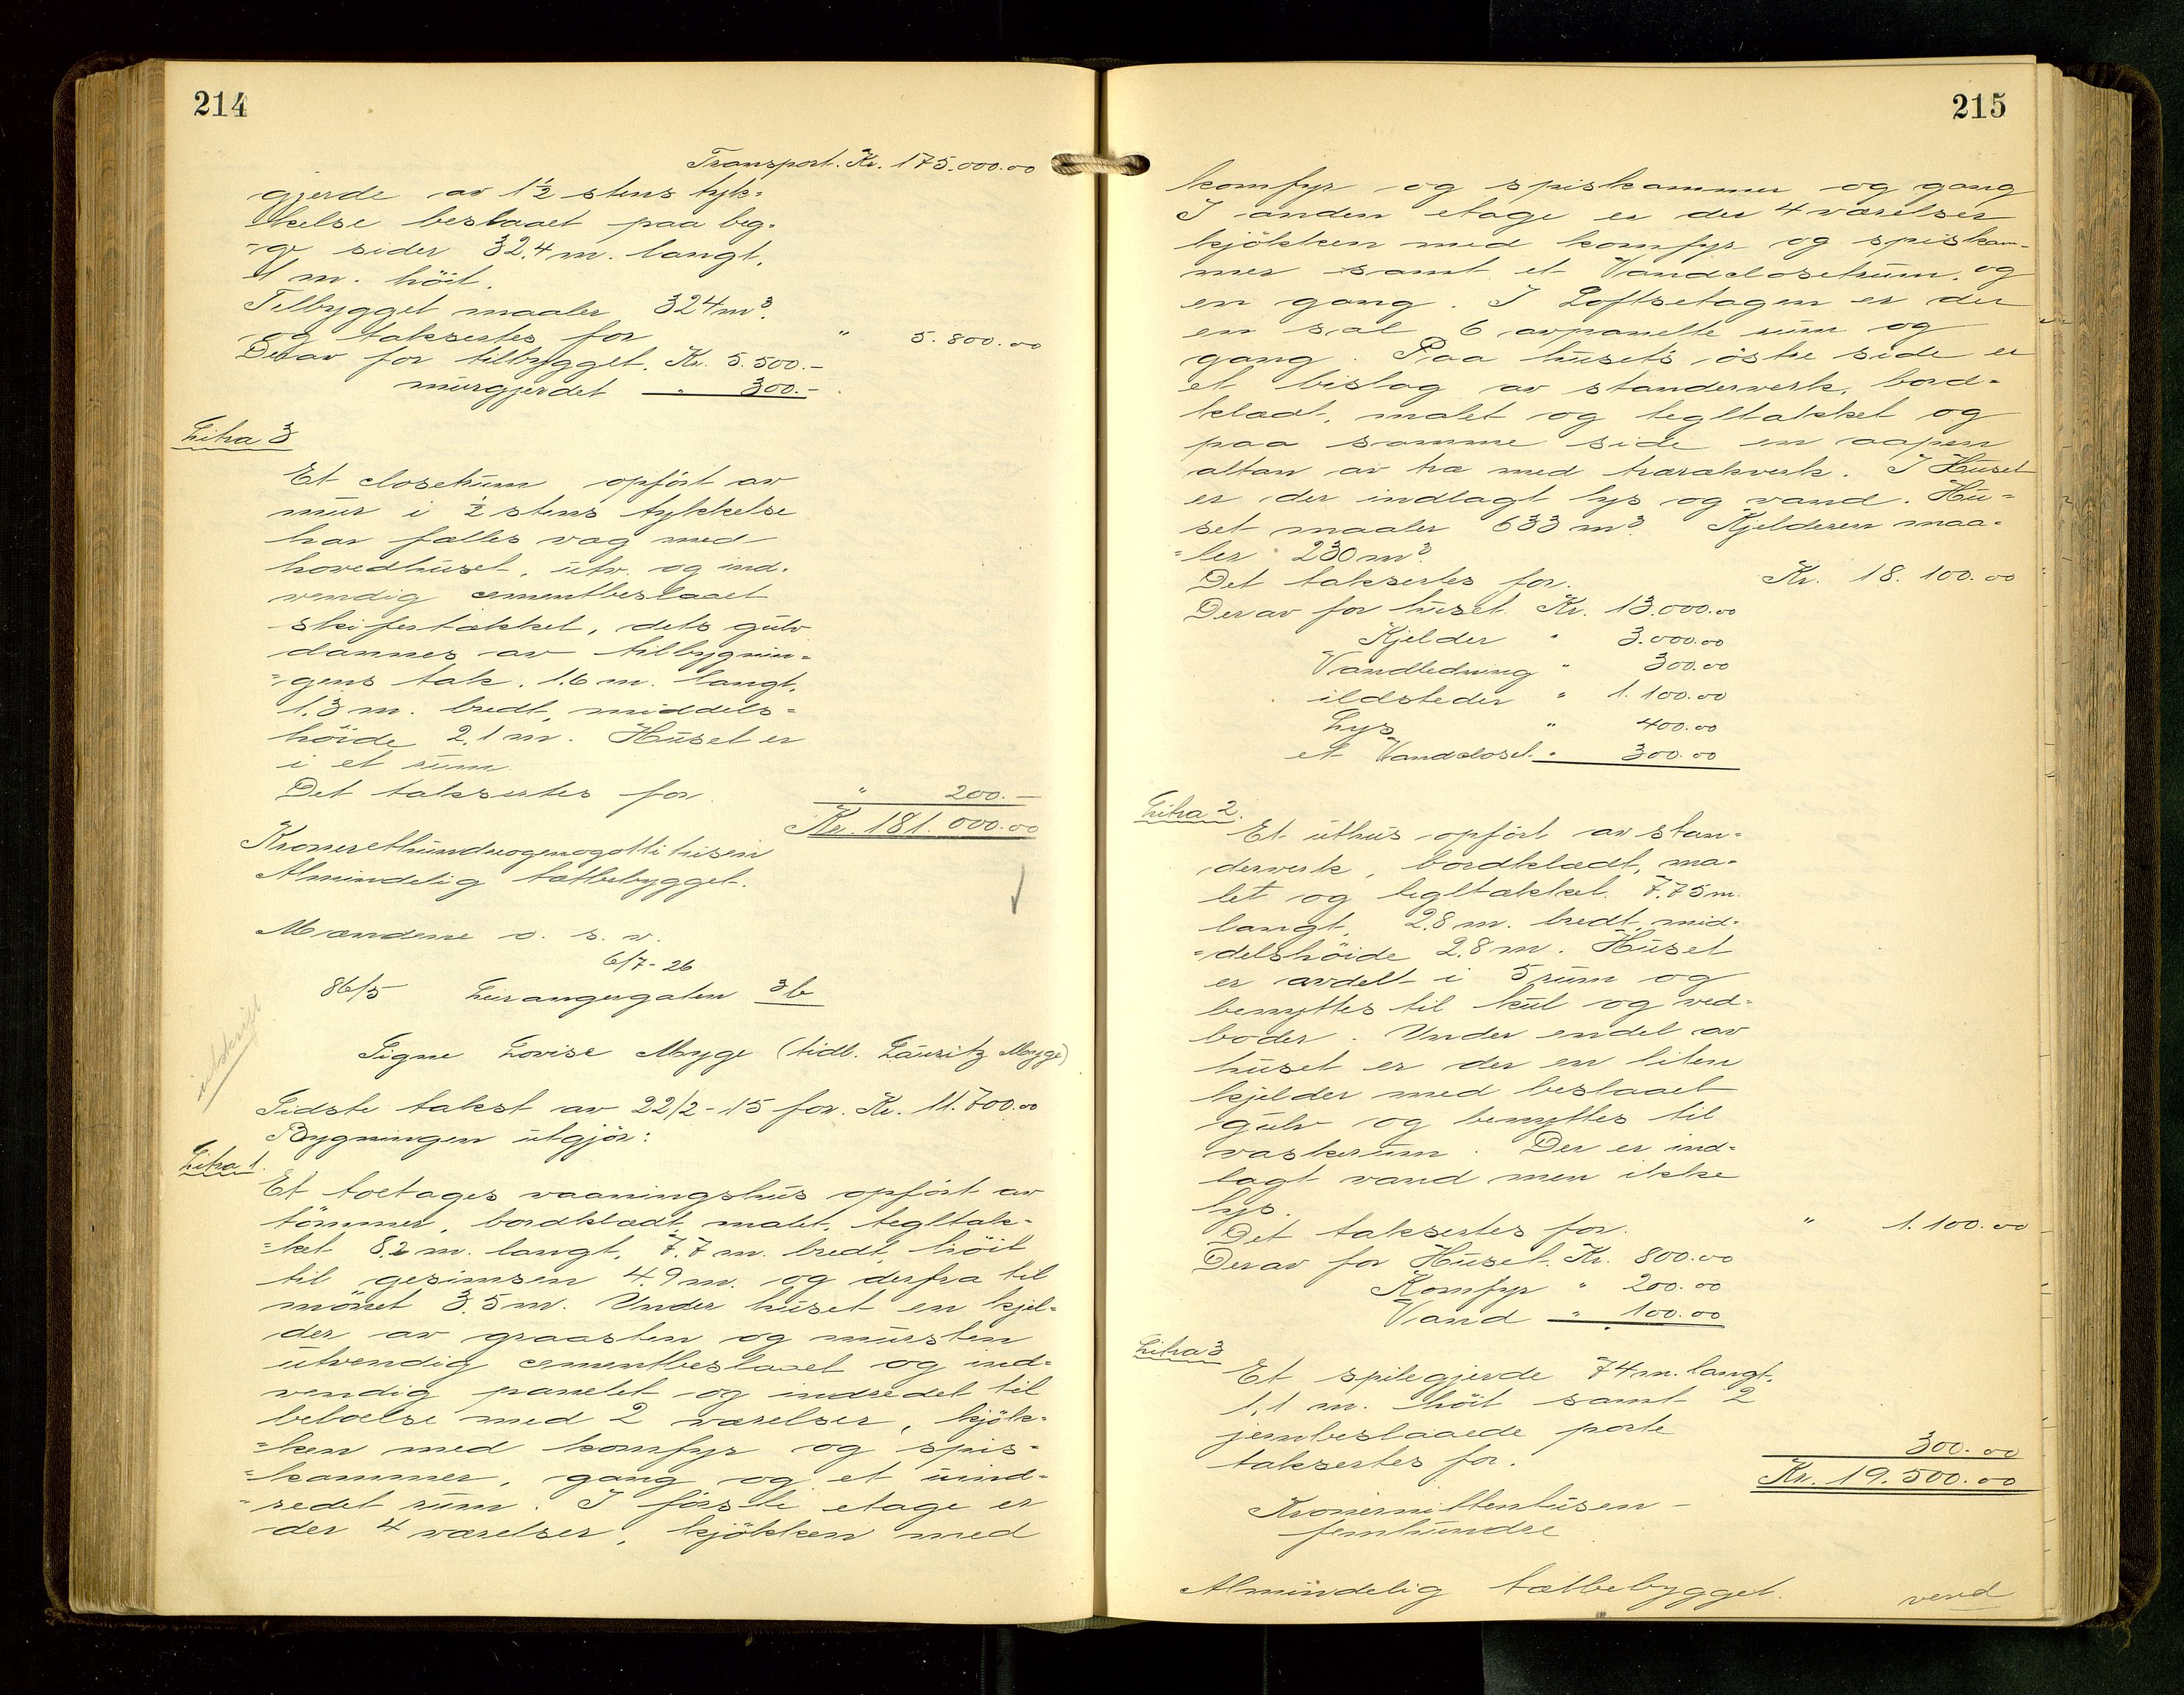 214
Transport. Kr. 175.000.00
gjerde av 1½ stens tyk=
kelse beslaaet paa beg=
=ge sider 32,4 m. langt,
1 m. höit.
Tilbygget maaler 324 m³.
og taksertes for " 5.800.00
Derav for tilbygget. Kr. 5.500.-
murgjerdet " 300.-
Litra 3
Et closetrum opfört av
mur i ½ stens tykkelse
har fælles væg med
hovedhuset, utv. og ind=
vendig cementbeslaaet
skifertækket, dets gulv
dannes av tilbygnin=
=gens tak. 1.6 m. langt,
1,3 m. bredt, middels=
höide 2,1 m. Huset er
i et rum.
Det taksertes for " 200.-
Kr. 181.000.00
Kroneretthundreogenogottitusen
Almindelig tætbebygget.
Mændene o. s. v.
6/7-26
86/5 Leirangergaten 3b
utskrift
Signe Lovise Mygge (tidl. Lauritz Mygge)
Sidste takst av 22/2-15 for. Kr. 11.700.00
Bygningen utgjör:
Litra 1.
Et toetages vaaningshus opfört av
tömmer, bordklædt, malt, tegltæk=
=ket 8.2 m. langt, 7.7 m. bredt, höit
til gesimsen 4.9 m. og derfra til
mönet 3.5 m. Under huset en kjel=
der av graasten og mursten
utvendig cementbeslaaet og ind=
vendig panelet og indredet til
beboelse med 2 værelser, kjök=
=ken med komfyr og spis=
=kammer, gang og et uind=
=redet rum. I förste etage er
der 4 værelser, kjökken med
215
komfyr og spiskammer og gang
I anden etage er der 4 værelser
kjökken med komfyr og spiskam=
mer samt et Vandclosetrum, og
en gang. I Loftsetagen er der
en sal 6 avpanelte rum og
gang. Paa husets östre side er
et bislag av standerverk, bord=
klædt, malet og tegltækket og
paa samme side en aapen
altan av træ med trærækverk. I Huset
er der indlagt lys og vand. Hu=
set maaler 633 m³. Kjelderen maa=
=ler 230 m³.
Det taksertes for. Kr. 18.100.00
Derav for huset Kr. 13.000.00
Kjelder " 3.000.00
Vandledning " 300.00
ildsteder " 1.100.00
Lys " 400.00
et Vandcloset. " 300.00
Litra 2.
Et uthus opfört av stan=
derverk, bordklædt, ma=
let og tegltækket. 7.75 m.
langt, 2.8 m. bredt, mid=
=delshöide 2.8 m. Huset
er avdelt i 5 rum og
benyttes til kul og ved=
boder. Under endel av
huset er der en liten
kjelder med beslaaet
gulv og benyttes til
vaskerum. Der er ind=
lagt vand men ikke
lys.
Det taksertes for. " 1.100.00
Derav for Huset. Kr. 800.00
Komfyr " 200.00
Vand " 100.00
Litra 3
Et spilegjerde 74 m. langt,
1,1 m. höit samt 2
jernbeslaaede porte
taksertes for. 300.00
Kr. 19.500.00
Kronernittentusen-
femhundre
Almindelig tætbebygget.
vend